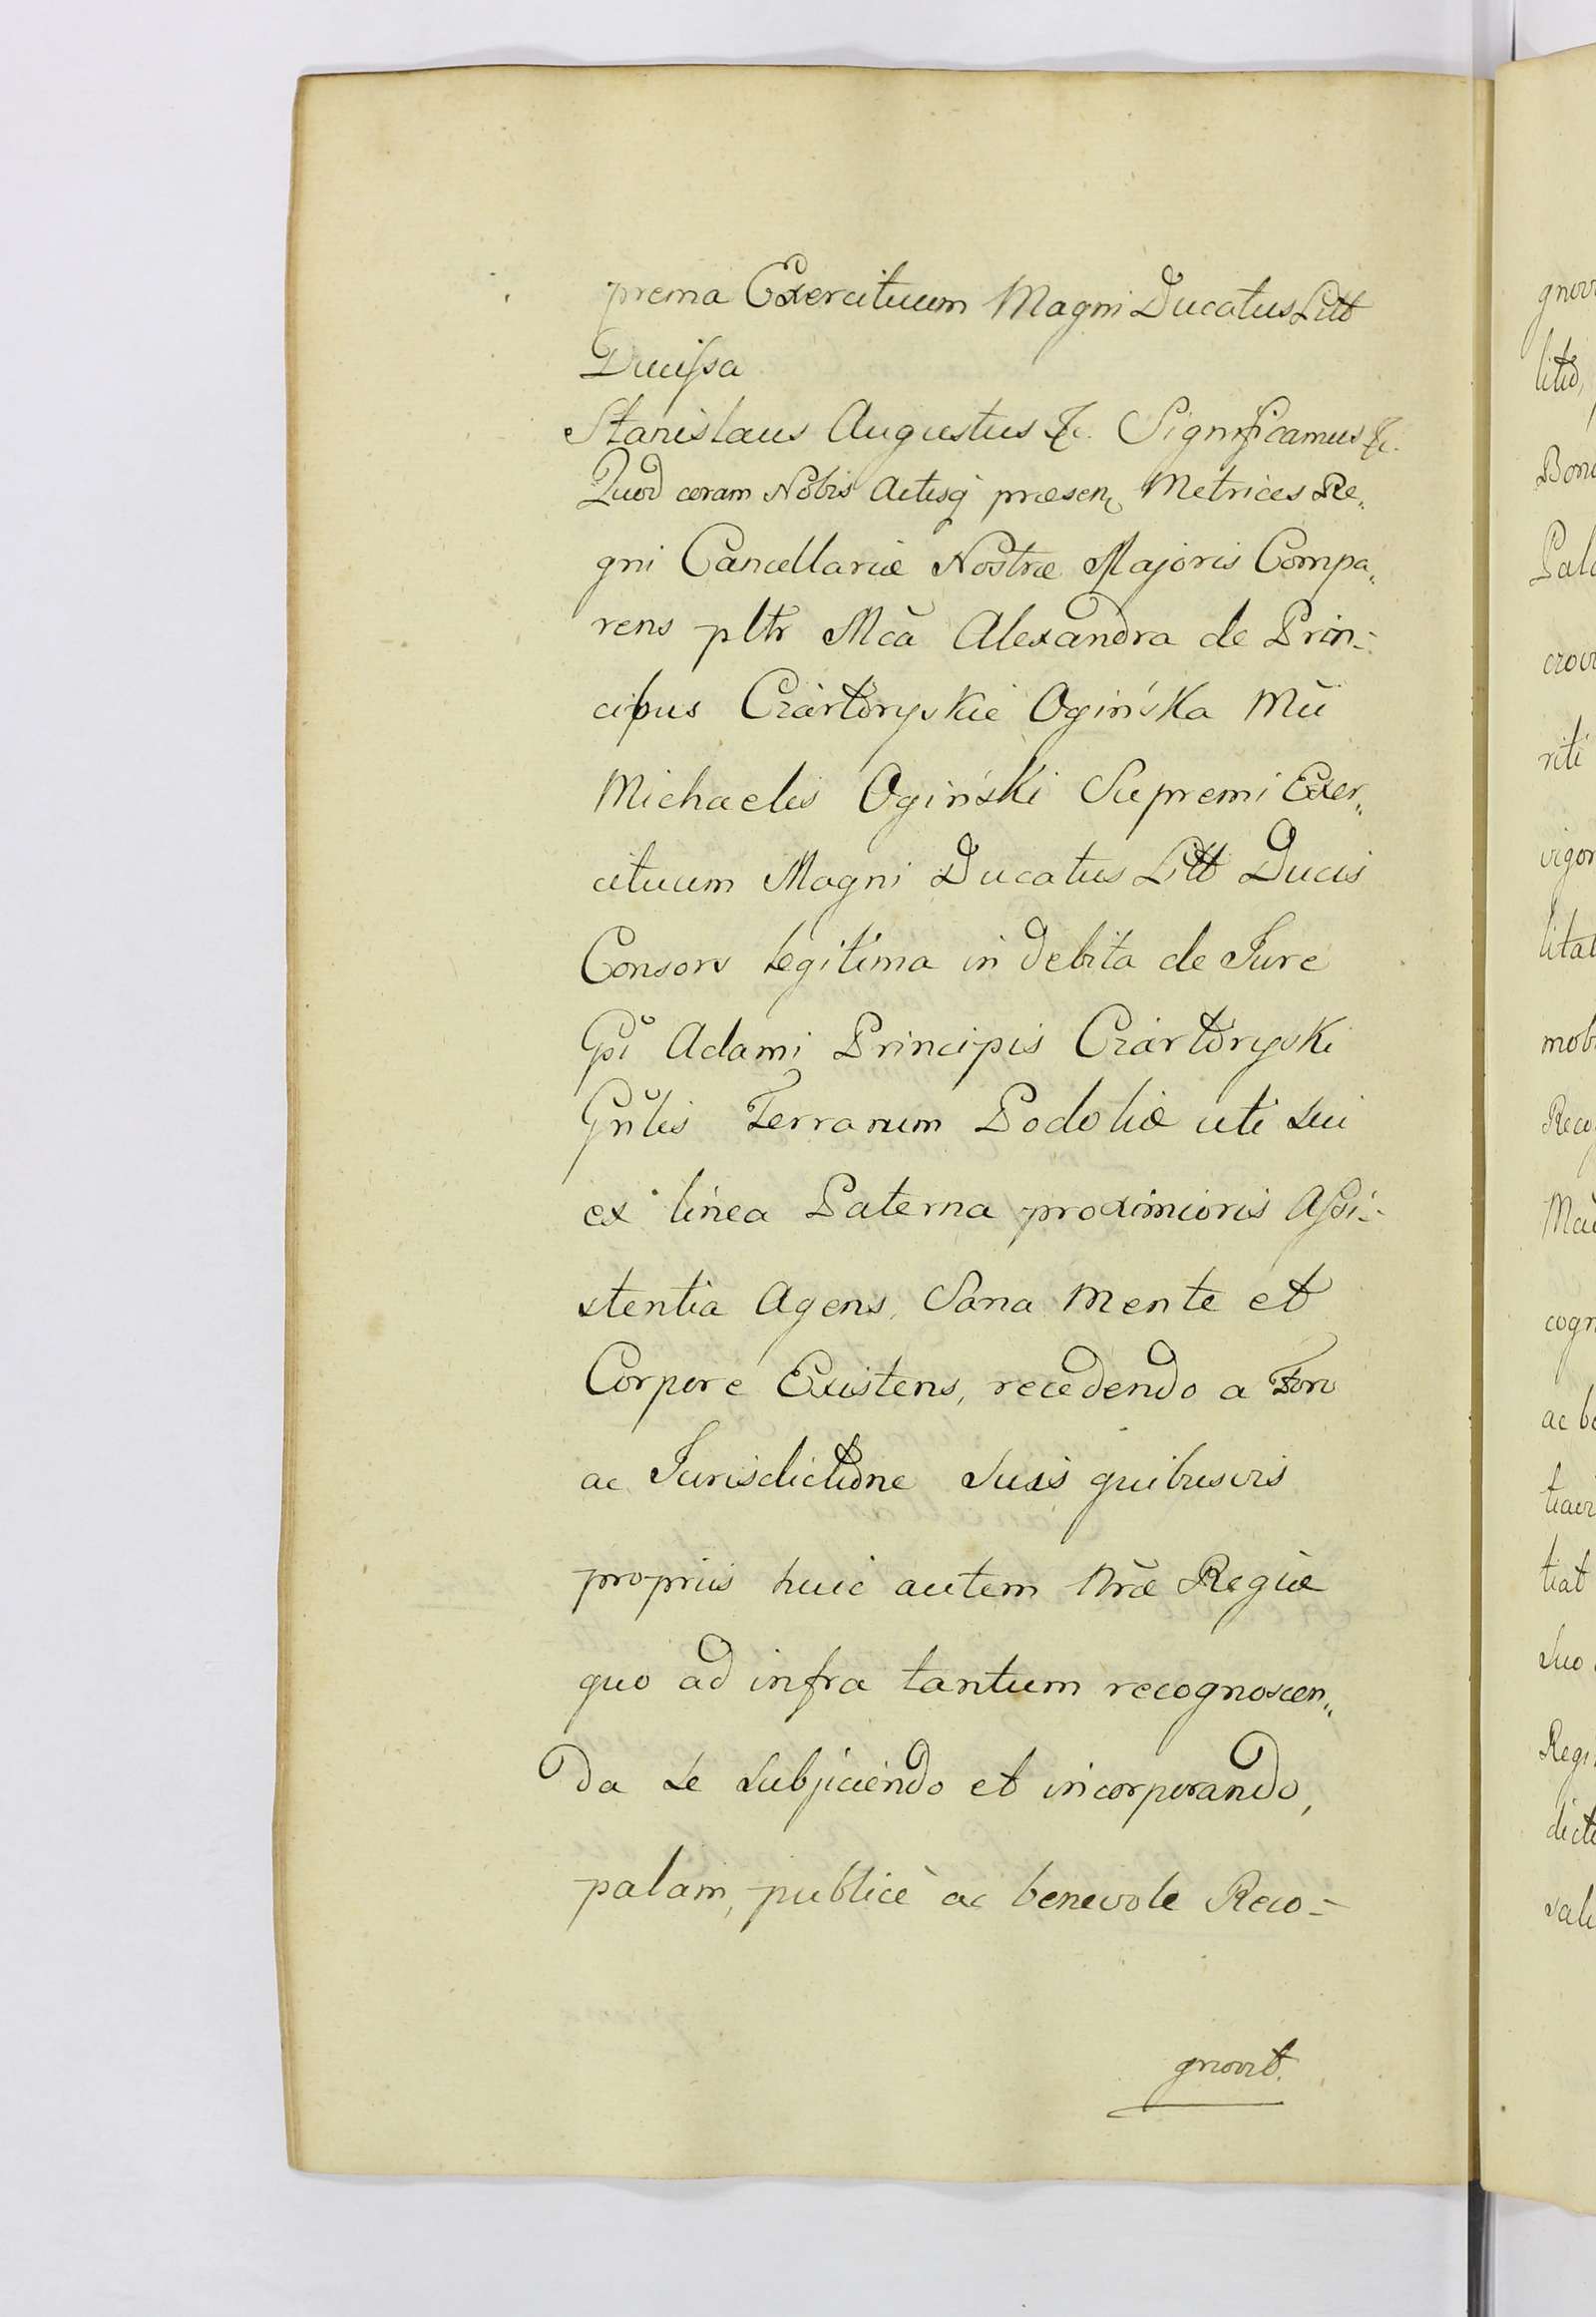 prema Exercituum Magni Ducatus Litt
Ducissa
Stanislaus Augustus &c. Significamus &c.
Quod coram Nobis Actisq præsen Metrices Re„
gni Cancellariæ Nostræ Majoris Compa„
rens pltr Mča Alexandra de Prin=
cipus Czartoryskie Ogińska Mči
Michaelis Ogiński Supremi Exer„
cituum Magni Ducatus Litt Ducis
Consors legitima in debita de Jure
Adami Principis Czartoryski
Gñlis Terrarum Podoliæ uti sui
ex linea Paterna proximioris Assi=
stentia Agens, Sana mente et
Corpore Existens, recedendo a Foro
ac Jurisdictione suis quibusvis
propriis huic autem Nræ Regiæ
quo ad infra tantum recognoscen„
da se subjiciendo et incorporando,
palam, publicè ac benevole Reco=
gnovit.
gnovi
litis,
Bono
Pala
czow
riti
vigor
litat
mob
Reco
cogn
ac be
tiat
suo
Regn
dicti